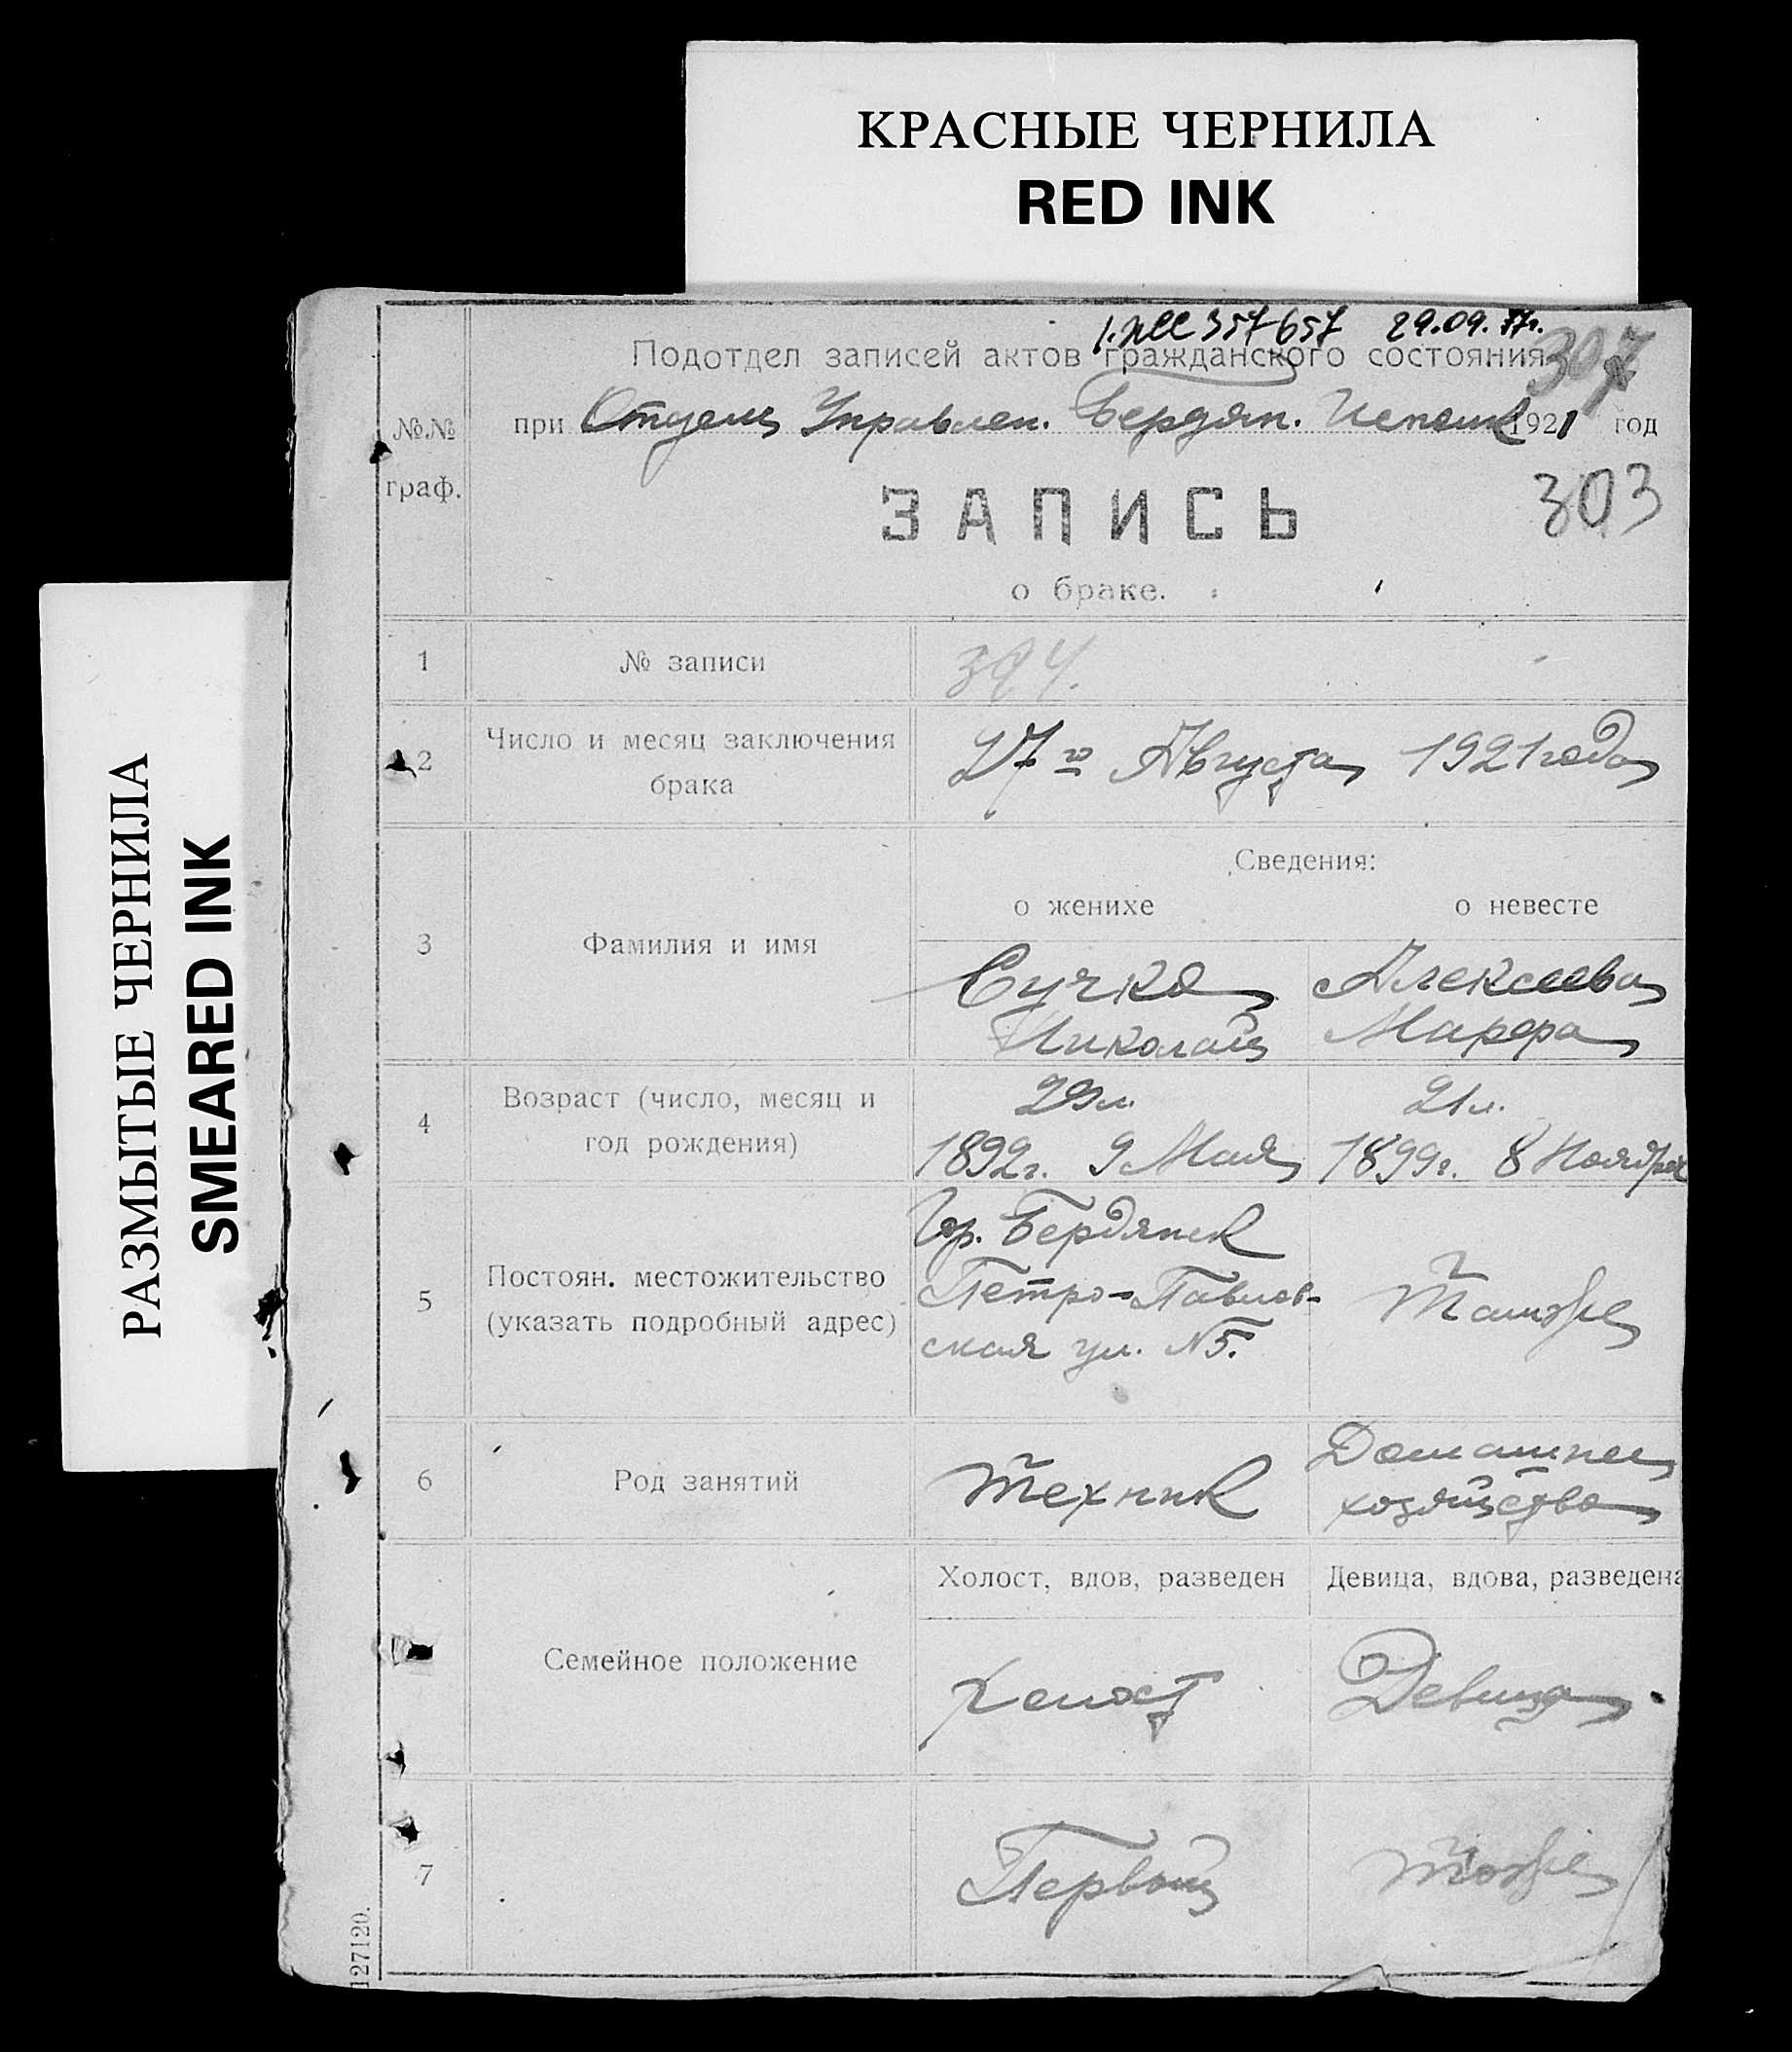 КРАСНЫЕ ЧЕРНИЛА
RED INK
РАЗМЫТЫЕ ЧЕРНИЛА
SMEARED INK
357657 29.09.77г.
Подотдел записей актов гражданского состояния
307
№№ граф.
при Отделе Управлен. Бердян. Исполк 1921 год
ЗАПИСЬ
303
о браке.
1 № записи
2 Число и месяц заключения брака
27го Августа 1921 года
Сведения:
о женихе о невесте
3 Фамилия и имя
Сучко Алексеева
Николай Марфа
4 Возраст (число, месяц и год рождения)
29 л. 21 л.
1892г. 9 Мая 1899г. 8 Ноября
5 Постоян. местожительство (указать подробный адрес)
Гор. Бердянск
Петро-Павлов-
ская ул. №5.
Там же
6 Род занятий
Техник
Домашнее
хозяйство
Холост, вдов, разведен Девица, вдова, разведена
Семейное положение
Холост Девица
7
Первый Тоже
127120.